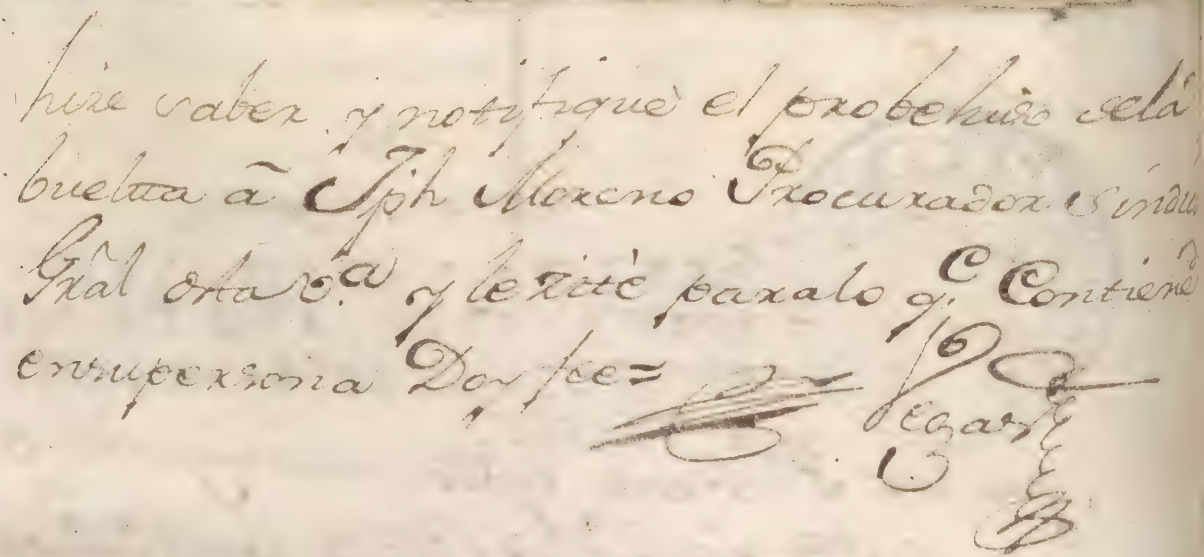 hize saber y notifiquè el probehido dela
buelta ā Jph Moreno Procurador Sindico
Grāl desta v.ª y le zitè paralo q.e Contiene
ensupersona Doy fee=